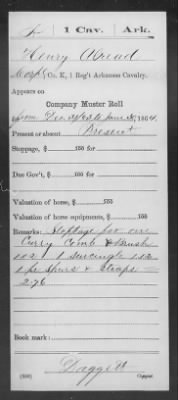 1 Cav. Ark.
Henry
Corpl, Co. K, 1 Reg't Arkansas Cavalry.
Appears on
Company Muster Roll
for Dec 1863 to June 30, 1864.
Present or absent Present
Stoppage, $ 100 for
Due Gov't, $ 100 for
Valuation of horse, $ 100
Valuation of horse equipments, $ 100
Remarks: Stoppage for one
Curry Comb & Brush
1 Surcingle
1 pr Spurs & Straps
276
Book mark:
Daggett
(358) Copyist.